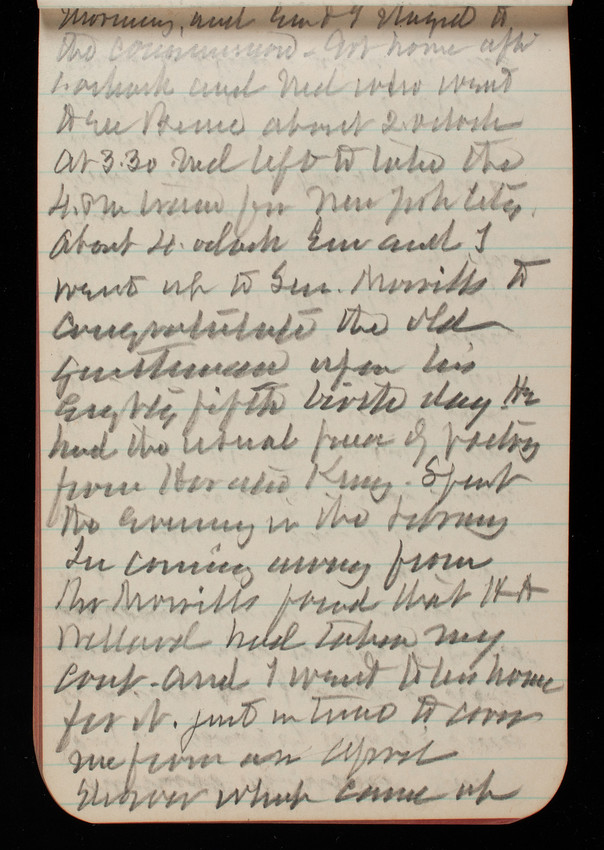 Morning, and Em & I stayed to
the communion - Got home after
1 o'clock and Ned who went
to see Bessie about 2 oclock
At 3.30 Ned left to take the
4. P.M train for New York City.
About 4. oclock Em and I
went up to Sen. Morrills to
congratulate the old
gentleman upon his
Eighty fifth birth day He
had the usual piece of poetry
from Horatio King. Spent
the evening in the library
In coming away from
Mr Morrills found that
Willard had taken my
coat - and I went to his home
for it. just in time to cover
me from an April
Shower which came up